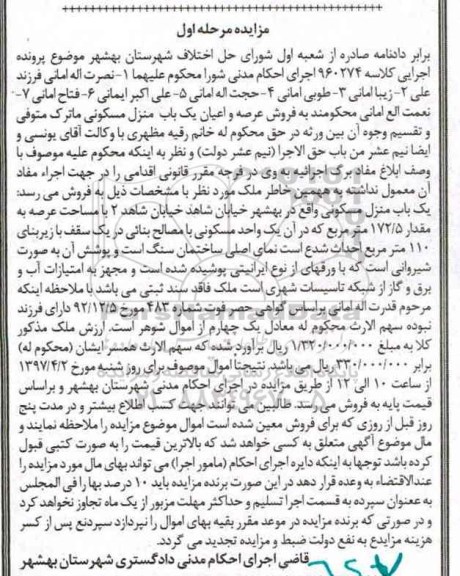 مزایده مرحله اول
برابر دادنامه صادره از شعبه اول شورای حل اختلاف شهرستان بهشهر موضوع پرونده
اجرایی کلاسه ۹۶۰۲۷۴ اجرای احکام مدنی شورا محکوم علیهما ۱-نصرت اله امانی فرزند
علی ۲-زیبا امانی ۳-طوبی امانی ۴-حجت اله امانی ۵-علی اکبر ایمانی ۶-فتاح امانی ۷-
نعمت الع امانی محکومند به فروش عرصه و اعیان یک باب منزل مسکونی ماترک متوفی
و تقسیم وجوه آن بین ورثه در حق محکوم له خانم رقیه مظهری با وکالت آقای یونسی و
ایضا نیم عشر من باب حق الاجرا (نیم عشر دولت) و نظر به اینکه محکوم علیه موصوف با
وصف ابلاغ مفاد برگ اجرائیه به وی در فرجه مقرر قانونی اقدامی را در جهت اجراء مفاد
آن معمول نداشته به همین خاطر ملک مورد نظر با مشخصات ذیل به فروش می رسد:
یک باب منزل مسکونی واقع در بهشهر خیابان شاهد خیابان شاهد ۲ با مساحت عرصه به
مقدار ۱۷۲/۵ متر مربع که در آن یک واحد مسکونی با مصالح بنائی در یک سقف با زیربنای
۱۱۰ متر مربع احداث شدع است نمای اصلی ساختمان سنگ است و پوشش آن به صورت
شیروانی است که با ورقهای از نوع ایرانیتی پوشیده شده است و مجهز به امتیازات آب و
برق و گاز از شبکه تاسیسات شهری است ملک فاقد سند ثبتی می باشد با ملاحظه اینکه
مرحوم قدرت اله امانی براساس گواهی حصر فوت شماره ۴۸۳ مورخ ۹۲/۱۲/۵ دارای فرزند
نبوده سهم الارث محکوم له معادل یک چهارم از اموال شوهر است. ارزش ملک مذکور
کلا به مبلغ ۱/۳۲۰/۰۰۰/۰۰۰ ریال برآورد شده که سهم الارث همسر ایشان (محکوم له)
برابر ۳۳۰/۰۰۰/۰۰۰ ریال می باشد نتیجتا اموال موصوف برای روز شنبه مورخ ۱۳۹۷/۴/۲
از ساعت ۱۰ الی ۱۲ از طریق مزایده در اجرای احکام مدنی شهرستان بهشهر و براساس
قیمت پایه به فروش می رسد. طالبین می توانند جهت کسب اطلاع بیشتر و در مدت پنج
روز قبل از روزی که برای فروش معین شده است اموال موضوع مزایده را ملاحظه نمایند و
مال موضوع آگهی متعلق به کسی خواهد شد که بالاترین قیمت را به صورت کتبی قبول
کرده باشد توجها به اینکه دایره اجرای احکام (مامور اجرا) می تواند بهای مال مورد مزایده را
عندالاقتضاء به وعده قرار دهد در این صورت برنده مزایده باید ۱۰ درصد بها را فی المجلس
بهععنوان سپرده به قسمت اجرا تسلیم و حداکثر مهلت مزبور از یک ماه تجاوز نخواهد کرد
و در صورتی که برنده مزایده در موعد مقرر بقیه بهای اموال را نپردازد سپردنع پس از کسر
هزینه مزایدع به نفع دولت ضبط و مزایده تجدید می گردد.
قاضی اجرای احکام مدنی دادگستری شهرستان بهشهر